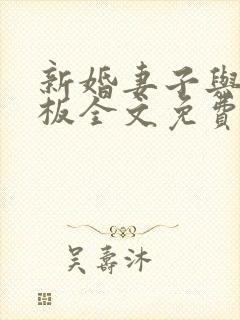 新婚妻子與
板全文免費
吳壽沐